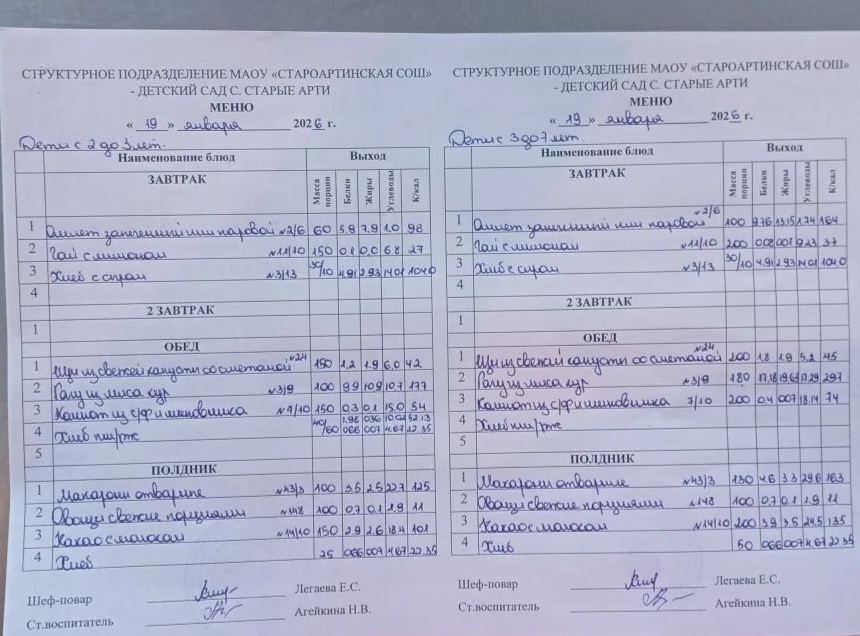 СТРУКТУРНОЕ ПОДРАЗДЕЛЕНИЕ МАОУ «СТАРОАРТИНСКАЯ СОШ»
- ДЕТСКИЙ САД С. СТАРЫЕ АРТИ
МЕНЮ
« 19 » января 2026 г.
Дети с 2 до 3 лет.
Наименование блюд Выход
ЗАВТРАК Масса порции Белки Жиры Углеводы К/кал
1 Омлет запеченный или паровой №2/6 60 5.9 7.9 1.0 98
2 Чай с лимоном №11/10 150 0.1 0.0 6.8 27
3 Хлеб с сыром №3/13 30/10 4.91 2.93 14.01 104.0
4
2 ЗАВТРАК
1
ОБЕД
1 Щи из свежей капусты со сметаной №24 150 1,2 1.9 6.0 42
2 Рагу из мяса кур №3/9 100 9.9 10.9 10.7 177
3 Компот из с/фр шиповника №7/10 150 0.3 0.1 15.0 54
4 Хлеб пш/рж 40/60 1.96 0.36 10.02 52.13
066 007 4.67 22.35
5
ПОЛДНИК
1 Макароны отварные №43/3 100 3.5 2.5 22.7 125
2 Овощи свежие порциями №148 100 0.7 0.1 1.9 11
3 Какао с молоком №14/10 150 2.9 2.6 18.4 101
4 Хлеб 25 066 007 4.67 22.35
Шеф-повар Легаева Е.С.
Ст.воспитатель Агейкина Н.В.
СТРУКТУРНОЕ ПОДРАЗДЕЛЕНИЕ МАОУ «СТАРОАРТИНСКАЯ СОШ»
- ДЕТСКИЙ САД С. СТАРЫЕ АРТИ
МЕНЮ
« 19 » января 2026 г.
Дети с 3 до 7 лет.
Наименование блюд Выход
ЗАВТРАК Масса порции Белки Жиры Углеводы К/кал
1 Омлет запеченный или паровой №2/6 100 9.76 13.15 1.74 164
2 Чай с лимоном №11/10 200 008 001 9.23 37
3 Хлеб с сыром №3/13 30/10 4.91 2.93 14.01 104.0
4
2 ЗАВТРАК
1
ОБЕД
1 Щи из свежей капусты со сметаной №24 200 1,8 1.9 5.2 45
2 Рагу из мяса кур №3/9 180 17,18 19.6 17.29 297
3 Компот из с/фр шиповника 7/10 200 0.4 007 18.14 74
4 Хлеб пш/рж
5
ПОЛДНИК
1 Макароны отварные №43/3 130 4.6 3.3 29.6 163
2 Овощи свежие порциями №148 100 0.7 0.1 1.9 11
3 Какао с молоком №14/10 200 3.9 3.5 24.5 135
4 Хлеб 50 066 007 4.67 22.35
Шеф-повар Легаева Е.С.
Ст.воспитатель Агейкина Н.В.